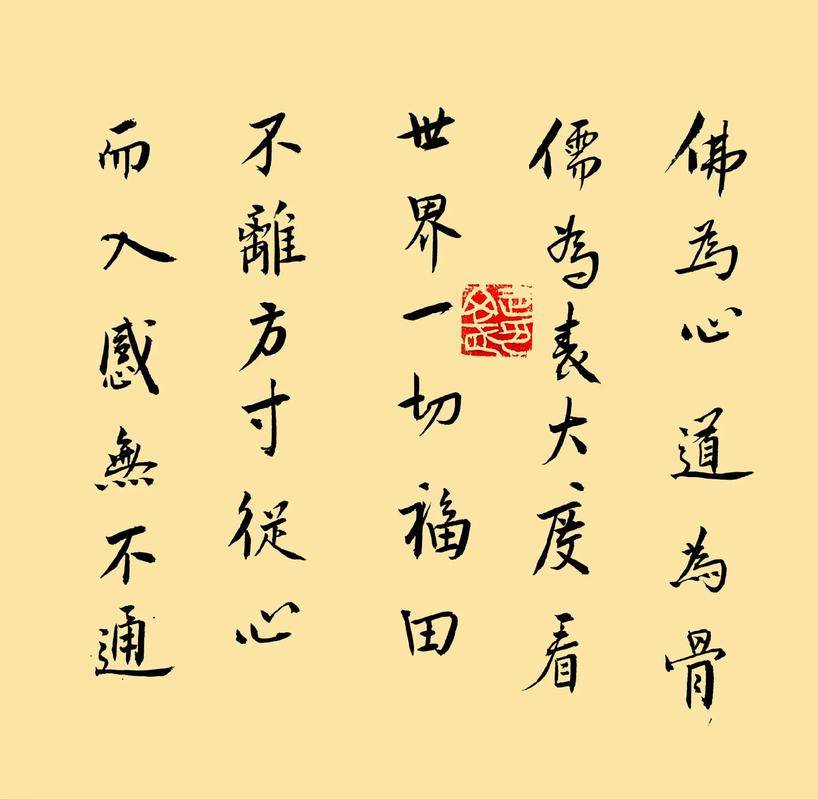 佛為心道為骨
儒為表大度看
世界一切福田
不離方寸從心
而入感無不通